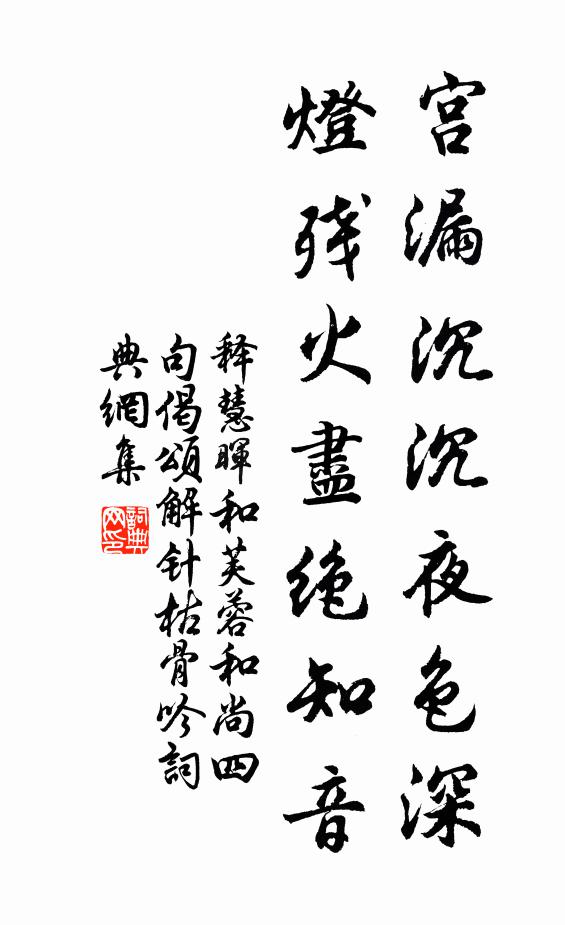 宫漏沉沉夜色深
燈残火盡絶知音
释慧暉和芙蓉和尚四
句偈頌解针枯骨吟詞
典網集
詞典
网印